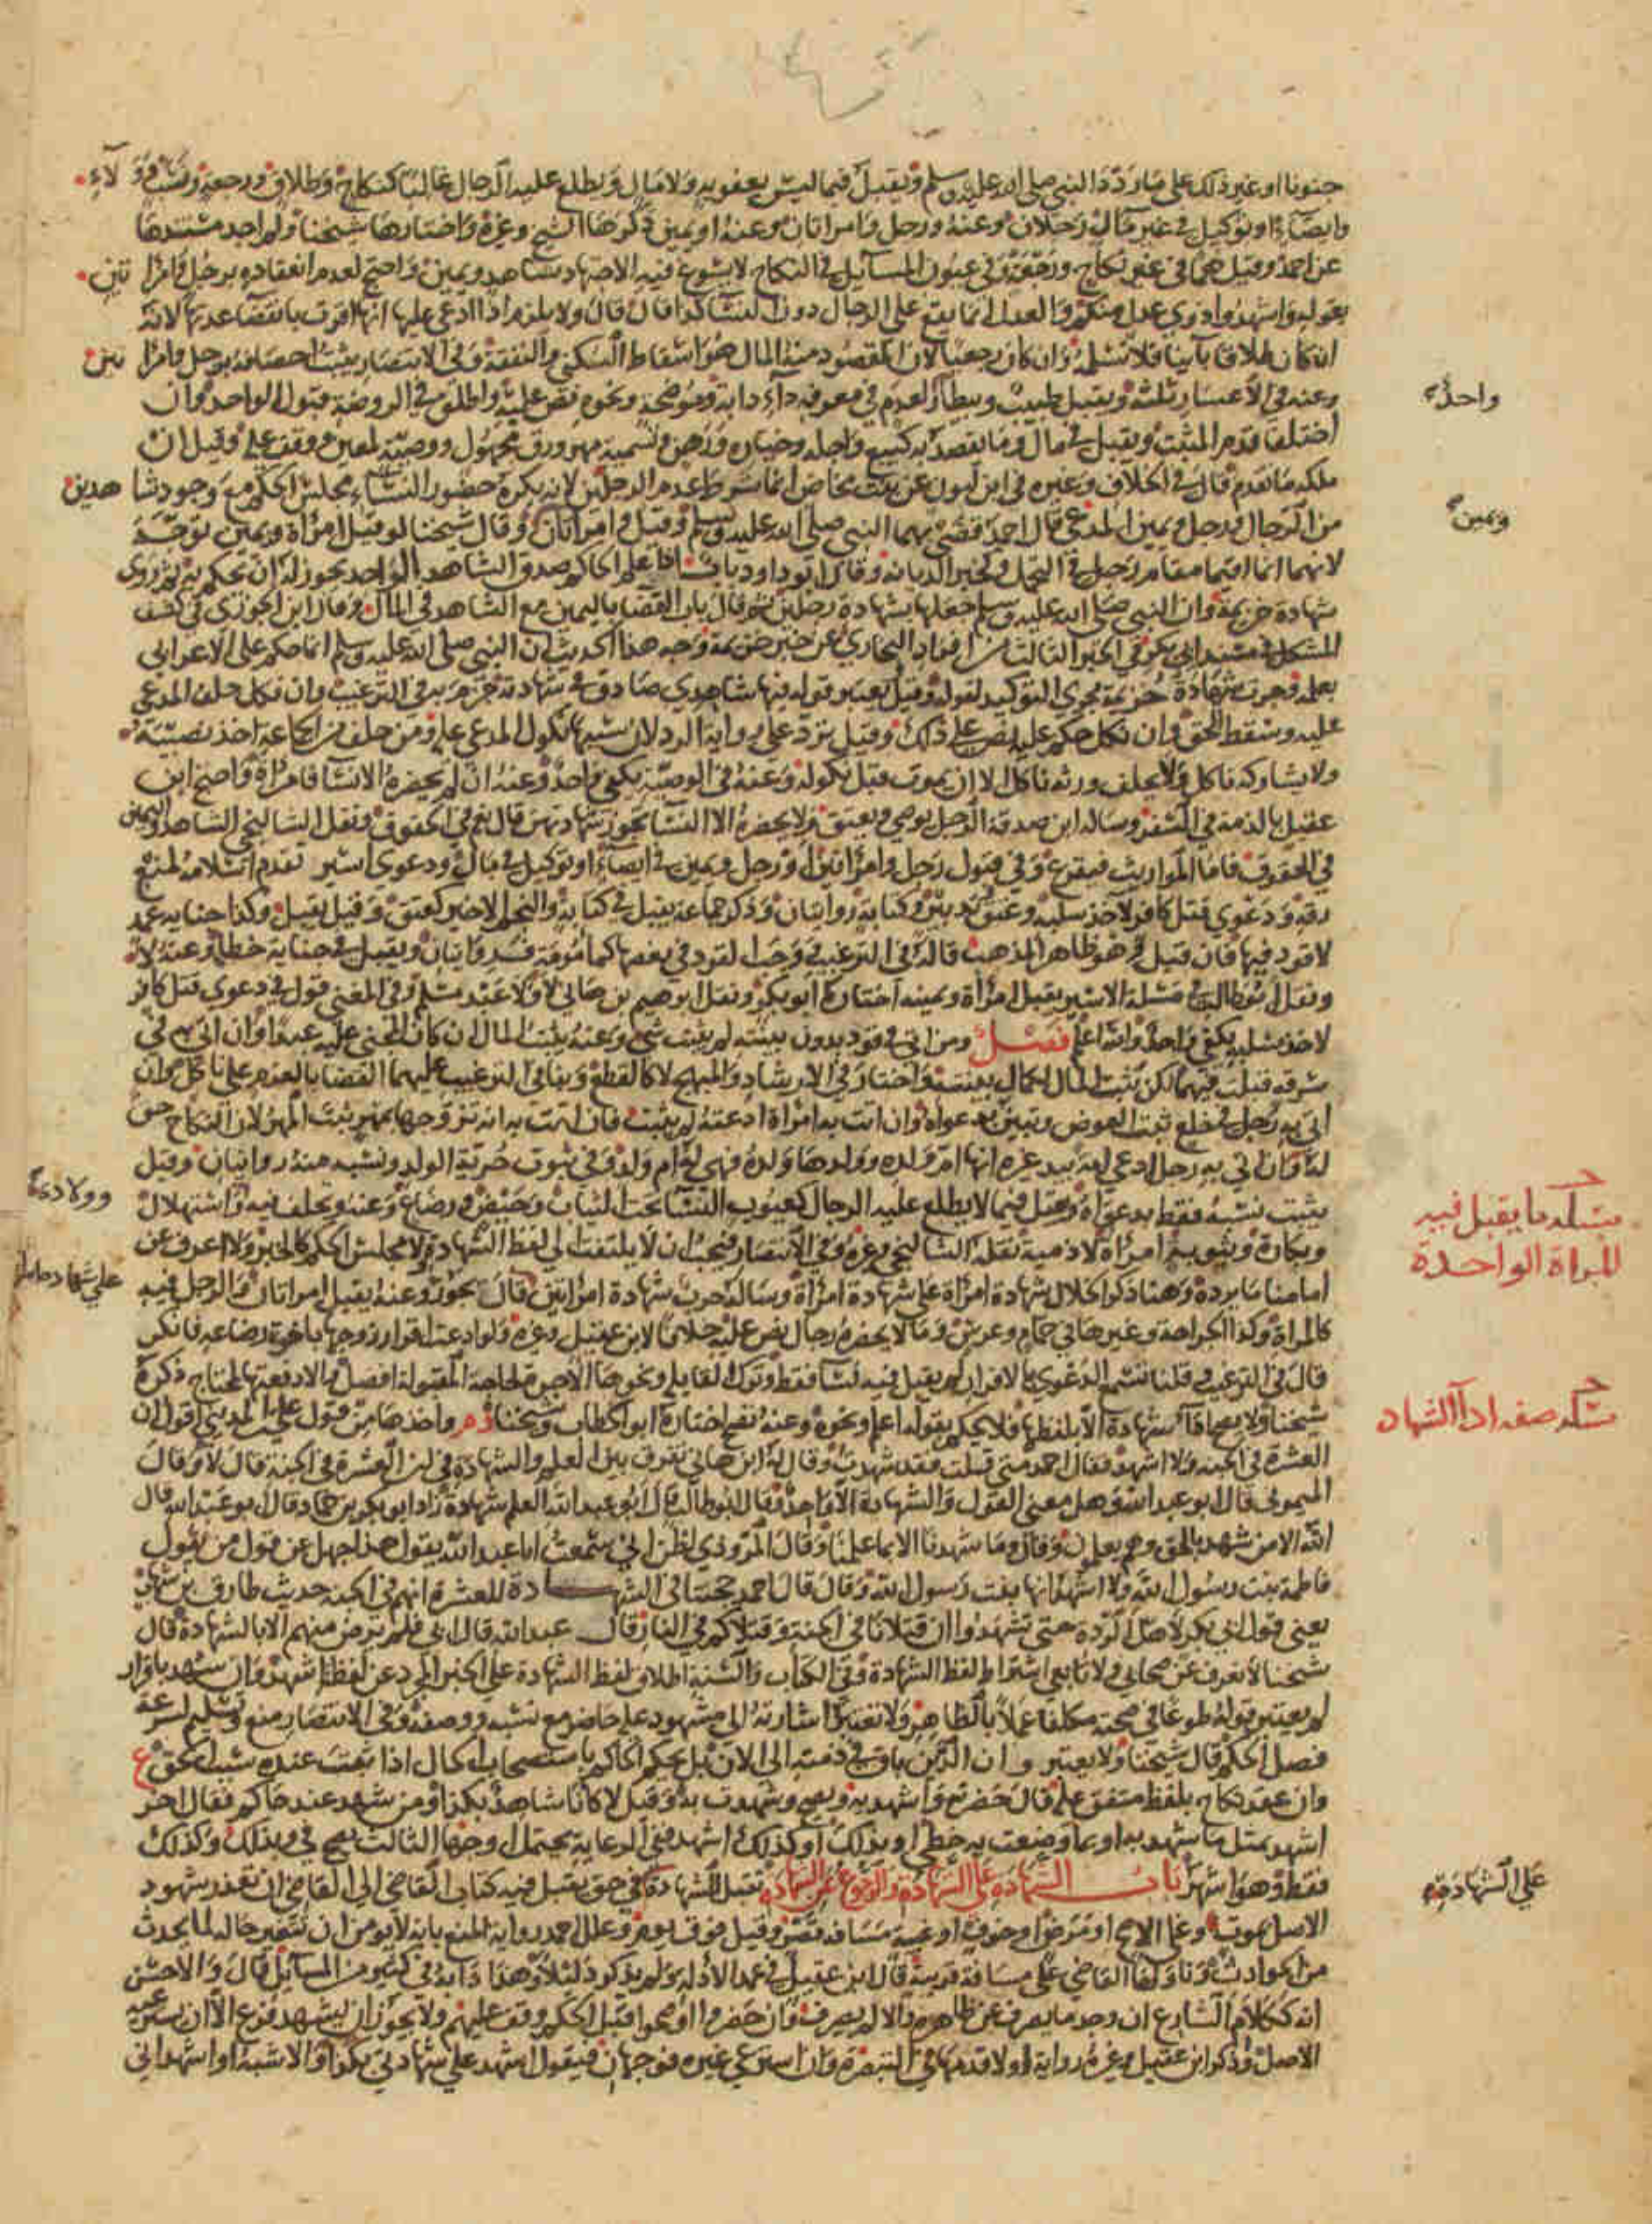 جنونا او غير ذلك على ما ردده النبي صلى الله عليه وسلم ويقبل فيما ليس بعقوبة ولا مال ويطلع عليه الرجال غالبا كنكاح وطلاق ورجعة ونسب وولاء
وايصاء او توكيل في غير مال رجلان وعنه ورجل وامراتان وعنه او يمين ذكرها الشيخ وغيره واختارها شيخنا ولم اجد مستندها
عن احمد وقيل هما في غير نكاح ورجعة وفي عيون المسائل في النكاح لا يسوغ فيه الاجتهاد بشاهد ويمين واحتج لعدم انعقاده برجل وامراتين
بقوله واشهدوا ذوي عدل منكم والعدل انما يقع على الرجال دون النساء كذا قال قال ولا يلزم اذا ادعى عليها انها اقرت بانقضاء عدتها لانه
ان كان طلاقا باينا فلا نسلمه وان كان رجعيا لان المقصود منه المال هو اسقاط السكنى والنفقة وفي الانتصار يثبت احصانه برجل وامراتين
وعنه في الاعسار ثلثة ويقبل طبيب وبيطار لعدم في معرفة داء دابة وموضحة ونحوه نص عليه واطلق في الروضة قبول الواحد وان
اختلفا قدم المثبت ويقبل في مال وما يقصد به كبيع واجله وخياره ورهن وتسمية مهر ورق مجهول ووصية لمعين ووقف عليه وقيل ان
ملكه ما تقدم قال في الخلاف وغيره في ابن لبون عن بنت مخاض انما شرط عدم الرجلين لانه يكره حضور النساء مجلس الحكم مع وجود شاهدين
من الرجال ورجل ويمين المدعي قال احمد قضى بهما النبي صلى الله عليه وسلم وقيل وامراتان وقال شيخنا لو قيل امراة ويمين توجه
لانهما انما اقيما مقام رجل في التحمل وكخبر الديانة وقال ابو داود باب اذا علم الحاكم صدق الشاهد الواحد يجوز له ان يحكم به ثم روى
شهادة خزيمة وان النبي صلى الله عليه وسلم جعلها بشهادة رجلين ثم قال باب القضا باليمين مع الشاهد في المال وقال ابن الجوزي في كشف
المشكل في مسند ابي بكر في الخبر الثالث من افراد البخاري عن خبر خزيمة وجه هذا الحديث ان النبي صلى الله عليه وسلم انما حكم على الاعرابي
بعلمه وجرت شهادة خزيمة مجرى التوكيد لقوله وقيل يعتبر قوله فيها شاهدي صادق في شهادته جزم به في الترغيب وان نكل حلف المدعى
عليه وسقط الحق وان نكل حكم عليه نص على ذلك وقيل ترد على رواية الرد لان سببها نكول المدعى عليه ومن حلف من الجماعة اخذ نصيبه
ولا يشاركه ناكل ولا يحلف ورثة ناكل الا ان يموت قبل نكوله وعنه في الوصية يكفي واحد وعنه ان لم يحضره الا النسا فامراة واحتج ابن
عقيل بالذمة في السفر وساله ابن صدقة الرجل يوصي ويعتق ولا يحضره الا النسا تجوز شهادتهن قال نعم في الحقوق ونقل الشالنجي الشاهد واليمين
في الحقوق فاما المواريث فيقرع وفي قبول رجل وامراتين او رجل ويمين في ايصاء او توكيل في مال ودعوى اسير تقدم اسلامه لمنع
رقه ودعوى قتل كافر لاخذ سلبه وعتق وتدبير وكتابة روايتان وذكر جماعة يقبل في كتابة والنجم الاخير كعتق وقيل يقبل وكذا جناية عمد
لا قود فيها فان قبل وهو ظاهر المذهب قاله في الترغيب ووجب القود في بعضها كمامومة فروايتان ويقبل في جناية خطا وعنه لا
ونقل ابو طالب في مسئلة الاسير يقبل امراة ويمينه اختاره ابو بكر ونقل ابرهيم بن هاني لا ولا عبد مسلم وفي المغني قول في دعوى قتل كافر
لاخذ سلبه يكفي واحد والله اعلم فصل ومن اتى في قود بدون بينته لم يثبت شي وعنه يثبت المال ان كان المجني عليه عبدا وان اتى به في
سرقة قبلت فيهما لكن يثبت المال لكمال بينته واختار في الارشاد والمبهج لا كالقطع وبنا في الترغيب عليهما القضا بالغرم على ناكل وان
اتى به رجل في خلع ثبت العوض وتبين بدعواه وان اتت به امراة ادعته لم يثبت فان اتت به انه تزوجها بمهر يثبت المهر لان النكاح حق
له وان اتى به رجل ادعى امة بيد غيره انها ام ولده وولدها ولده فهي له ام ولد وفي ثبوت حرية الولد ونسبه منه روايتان وقيل
يثبت نسبه فقط بدعواه ويقبل فيما لا يطلع عليه الرجال كعيوب النسا تحت الثياب وحيض ورضاع وعنه ويحلف فيه واستهلال
وبكارة وثيوبة امراة لا ذمية نقله الشالنجي وغيره وفي الانتصار فيجب ان لا يلتفت الى لفظ الشهادة ولا مجلس الحكم كالخبر ولا اعرف عن
امامنا ما يرده وهنا ذكر الخلال شهادة امراة على شهادة امراة وساله حرب شهادة امراتين قال يجوز وعنه يقبل امراتان والرجل فيه
كالمراة وكذا الجراحة وغيرها في حمام وعرس وما لا يحضره رجال نص عليه خلافا لابن عقيل وغيره ولو ادعت اقرار زوجها باخوة رضاعه فانكر
قال في الترغيب وقلنا تسمع الدعوى بالاقرار لم يقبل فيه نسا فقط وترك القابلة ونحوها الاجرة لحاجة المقبولة افضل والا دفعتها لمحتاج ذكره
شيخنا ولا يصح اداء شهادة الا بلفظها فلا يحكم بقوله اعلم ونحوه وعنه يصح اختاره ابو الخطاب وشيخنا واخذها من قول علي بن المديني اقول ان
العشرة في الجنة ولا اشهد فقال احمد متى قلت فقد شهدت وقال له ابن هاني تفرق بين العلم والشهادة في ان العشرة في الجنة قال لا وقال
الميموني قال ابو عبد الله وهل معنى القول والشهادة الا واحد وقال ابو طالب قال ابو عبد الله العلم شهادة زاد ابو بكر بن حماد قال ابو عبد الله قال
الله الا من شهد بالحق وهم يعلمون وقال وما شهدنا الا بما علمنا وقال المروذي اظن اني سمعت ابا عبد الله يقول هذا جهل عن قول من يقول
فاطمة بنت رسول الله ولا اشهد انها بنت رسول الله وقال قال احمد حجتنا في الشهادة للعشرة انهم في الجنة حديث طارق بن شهاب
يعني قول ابي بكر لاهل الردة حتى تشهدوا ان قتلانا في الجنة وقتلاكم في النار قال عبد الله قال ابي فلم يرض منهم الا بالشهادة قال
شيخنا لا نعرف عن صحابي ولا تابعي اشتراط لفظ الشهادة وفي الكتاب والسنة اطلاق لفظ الشهادة على الخبر المجرد عن لفظ اشهد وان شهد باقرار
لم يعتبر قوله طوعا في صحته مكلفا عملا بالظاهر ولا تعتبر اشارته الى مشهود عليه حاضر مع نسبه ووصفه وفي الانتصار منع وتسليم لسرعة
فصل الحكم قال شيخنا ولا يعتبر وان الدين باق في ذمته الى الان بل يحكم الحاكم باستصحاب الحال اذا ثبت عنده سبب الحق ع
وان عقد نكاح بلفظ متفق عليه قال حضرته واشهد به ويصح وشهدت به وقيل لا كانا شاهد بكذا ومن شهد عند حاكم فقال اخر
اشهد بمثل ما شهد به او بما وضعت به خطي او بذلك او كذلك اشهد ففي الرعاية يحتمل اوجها الثالث يصح في وبذلك وكذلك
فقط وهو اشهر باب الشهادة على الشهادة والرجوع عن الشهادة تقبل الشهادة في حق يقبل فيه كتاب القاضي الى القاضي ان تعذر شهود
الاصل بموت وعلى الاصح او مرض او خوف او غيبة مسافة قصر وقيل فوق يوم وعلل احمد رواية المنع بانه لا يومن ان تتغير حاله لما يحدث
من الحوادث وتاولها القاضي على مسافة قريبة قال ابن عقيل في عمد الادلة ولم يذكر دليلا وهذا دابه في كثير من المسائل قال والاحسن
انه ككلام الشارع ان وجد ما يصرف عن ظاهره والا لم يصرف وان حضروا او صحوا قبل الحكم وقف عليهم ولا يجوز ان يشهد فرع الا ان يسترعيه
الاصل وذكر ابن عقيل وغيره رواية او لا قدمها في التبصرة وان استرعى غيره فوجهان فيقول اشهد على شهادتي بكذا والاشبه او اشهد اني
واحد
ويمين
وولادة
على شهادة امراة
مسئلة ما يقبل فيه
المراة الواحدة
مسئلة صفة ادا الشهادة
على الشهادة